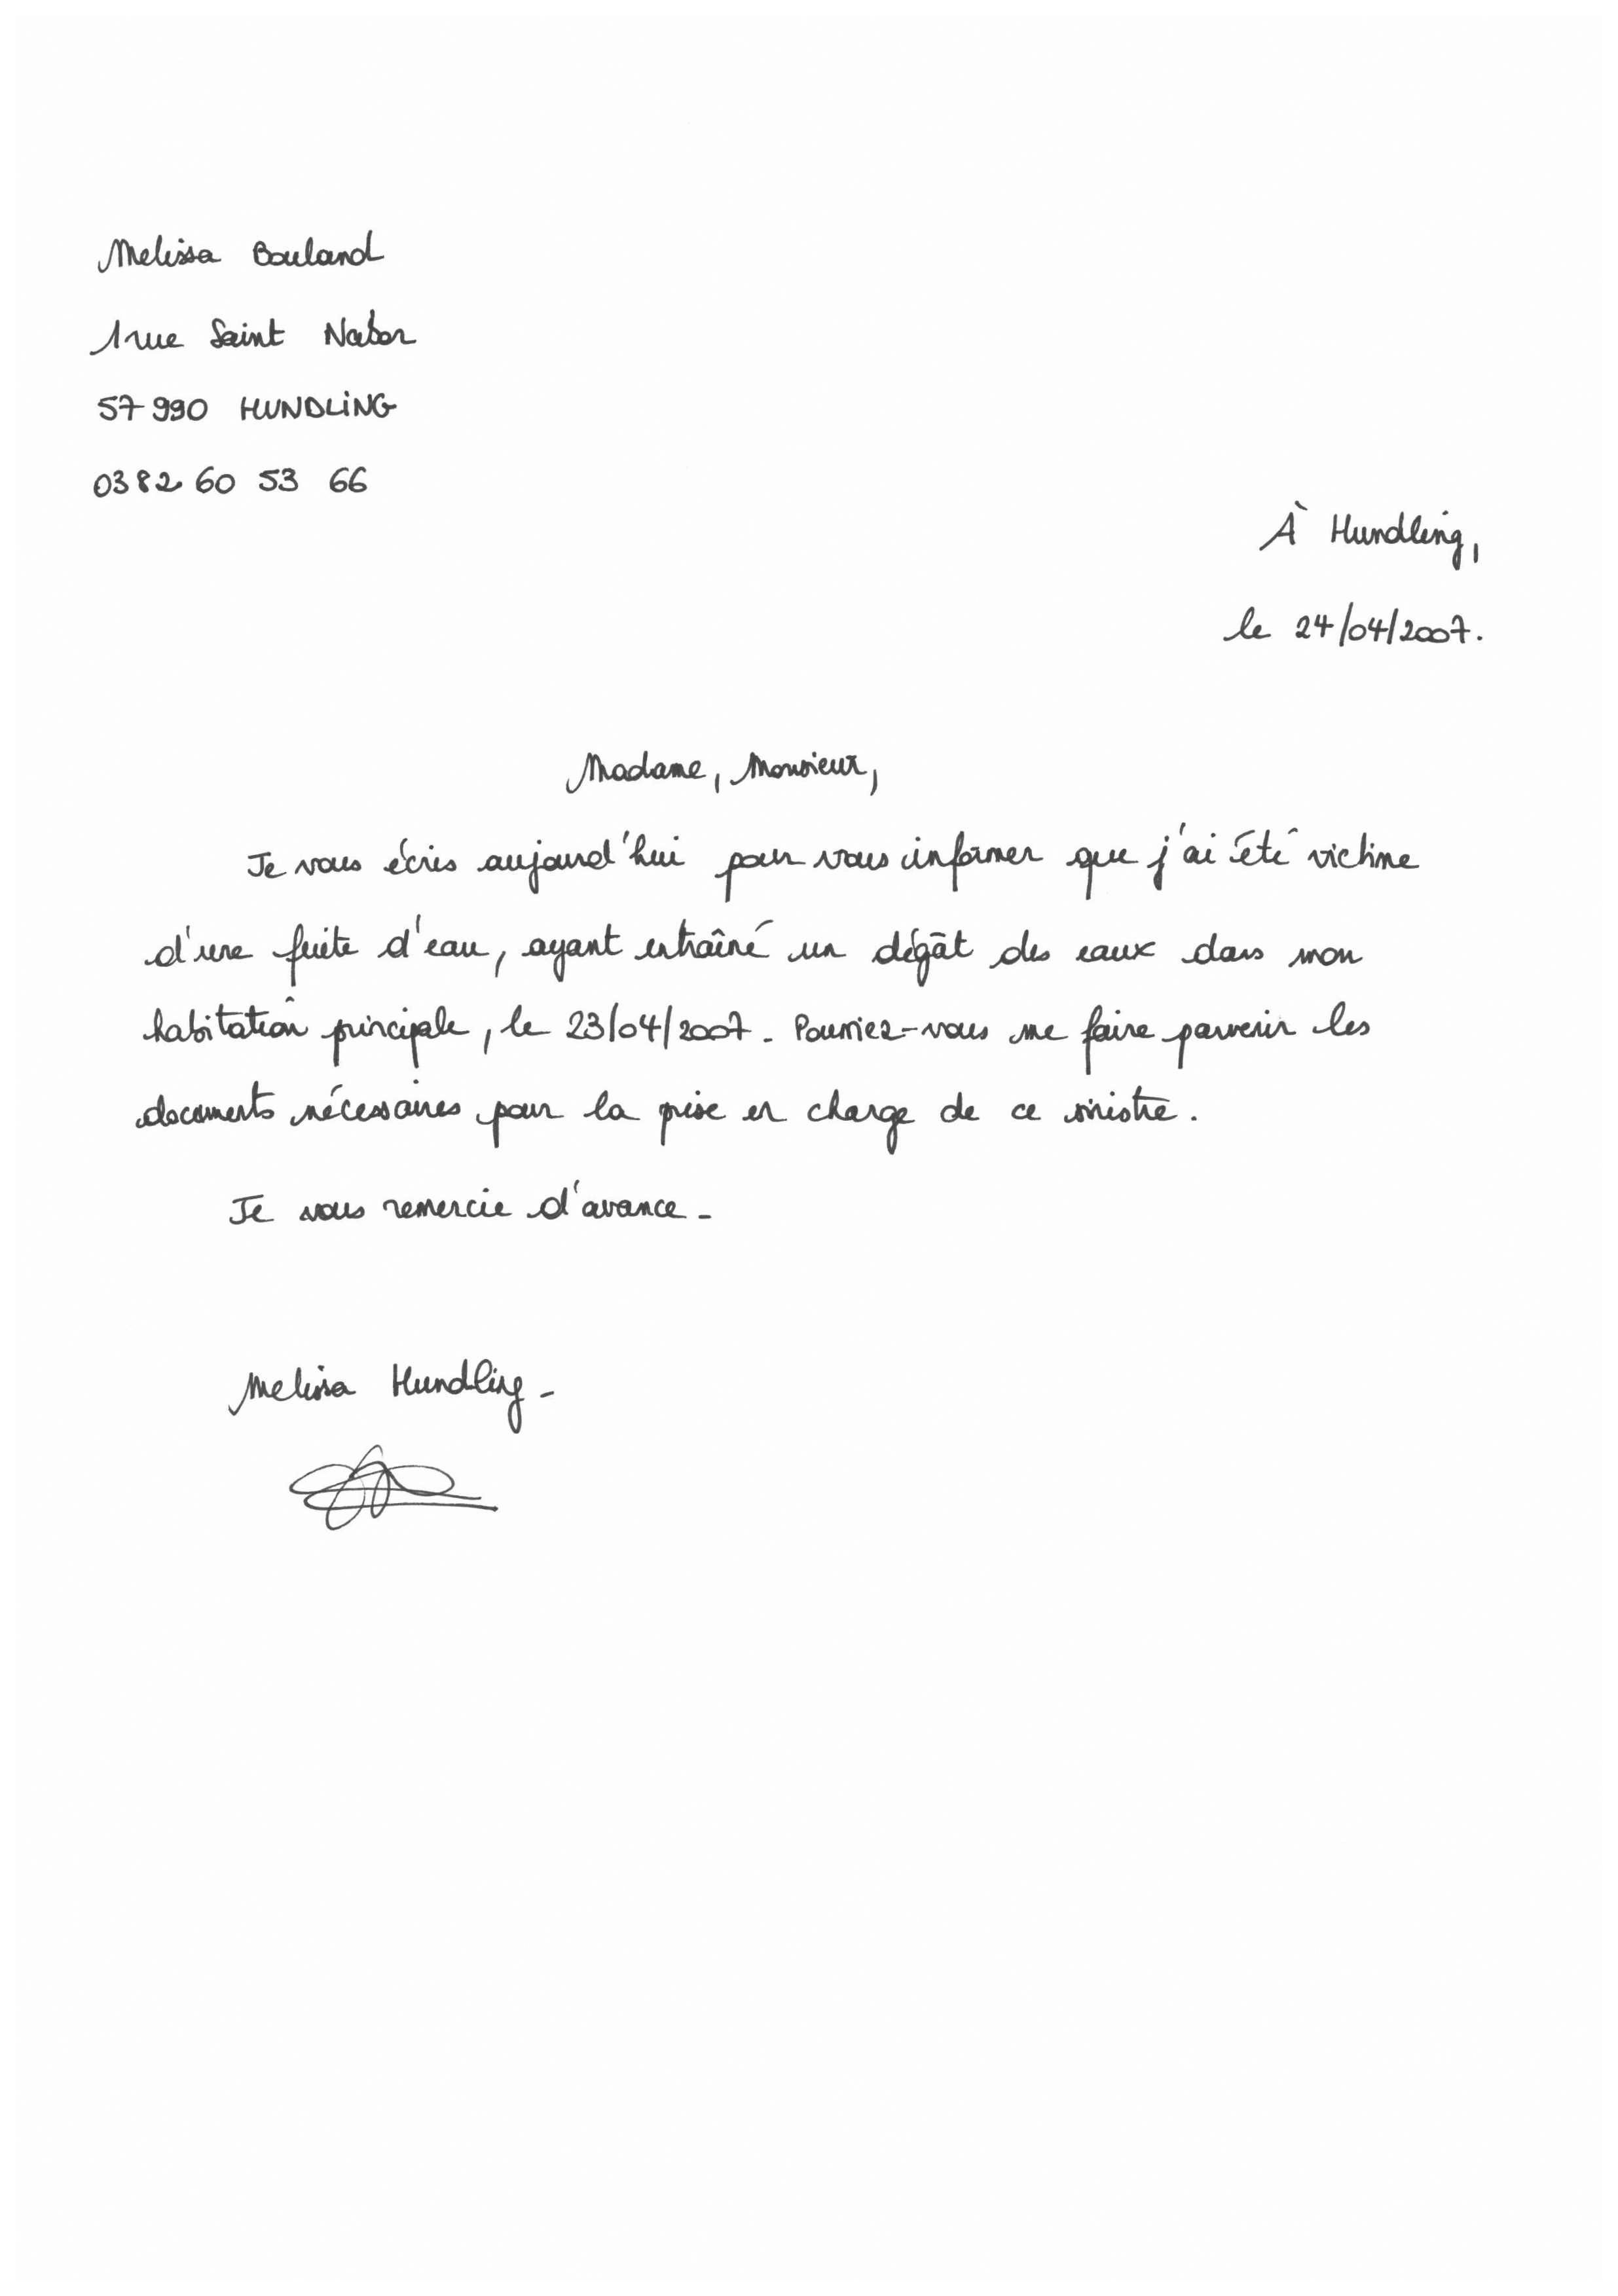 Melissa Bouland
1 rue Saint Nabor
57 990 HUNDLING
03 82 60 53 66
À Hundling,
le 24/04/2007.
Madame, Monsieur,
Je vous écris aujourd'hui pour vous informer que j'ai été victime
d'une fuite d'eau, ayant entraîné un dégât des eaux dans mon
habitation principale, le 23/04/2007. Pourriez-vous me faire parvenir les
documents nécessaires pour la prise en charge de ce sinistre.
Je vous remercie d'avance.
Melissa Hundling.